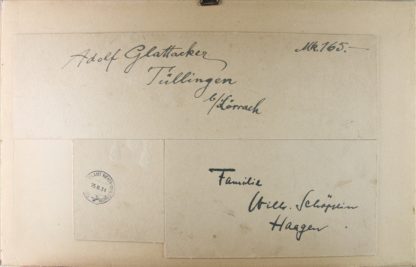 Adolf Glattacker
Mk. 165.-
Tüllingen
b/Lörrach
Familie
Wilh. Schöpflin
Haagen